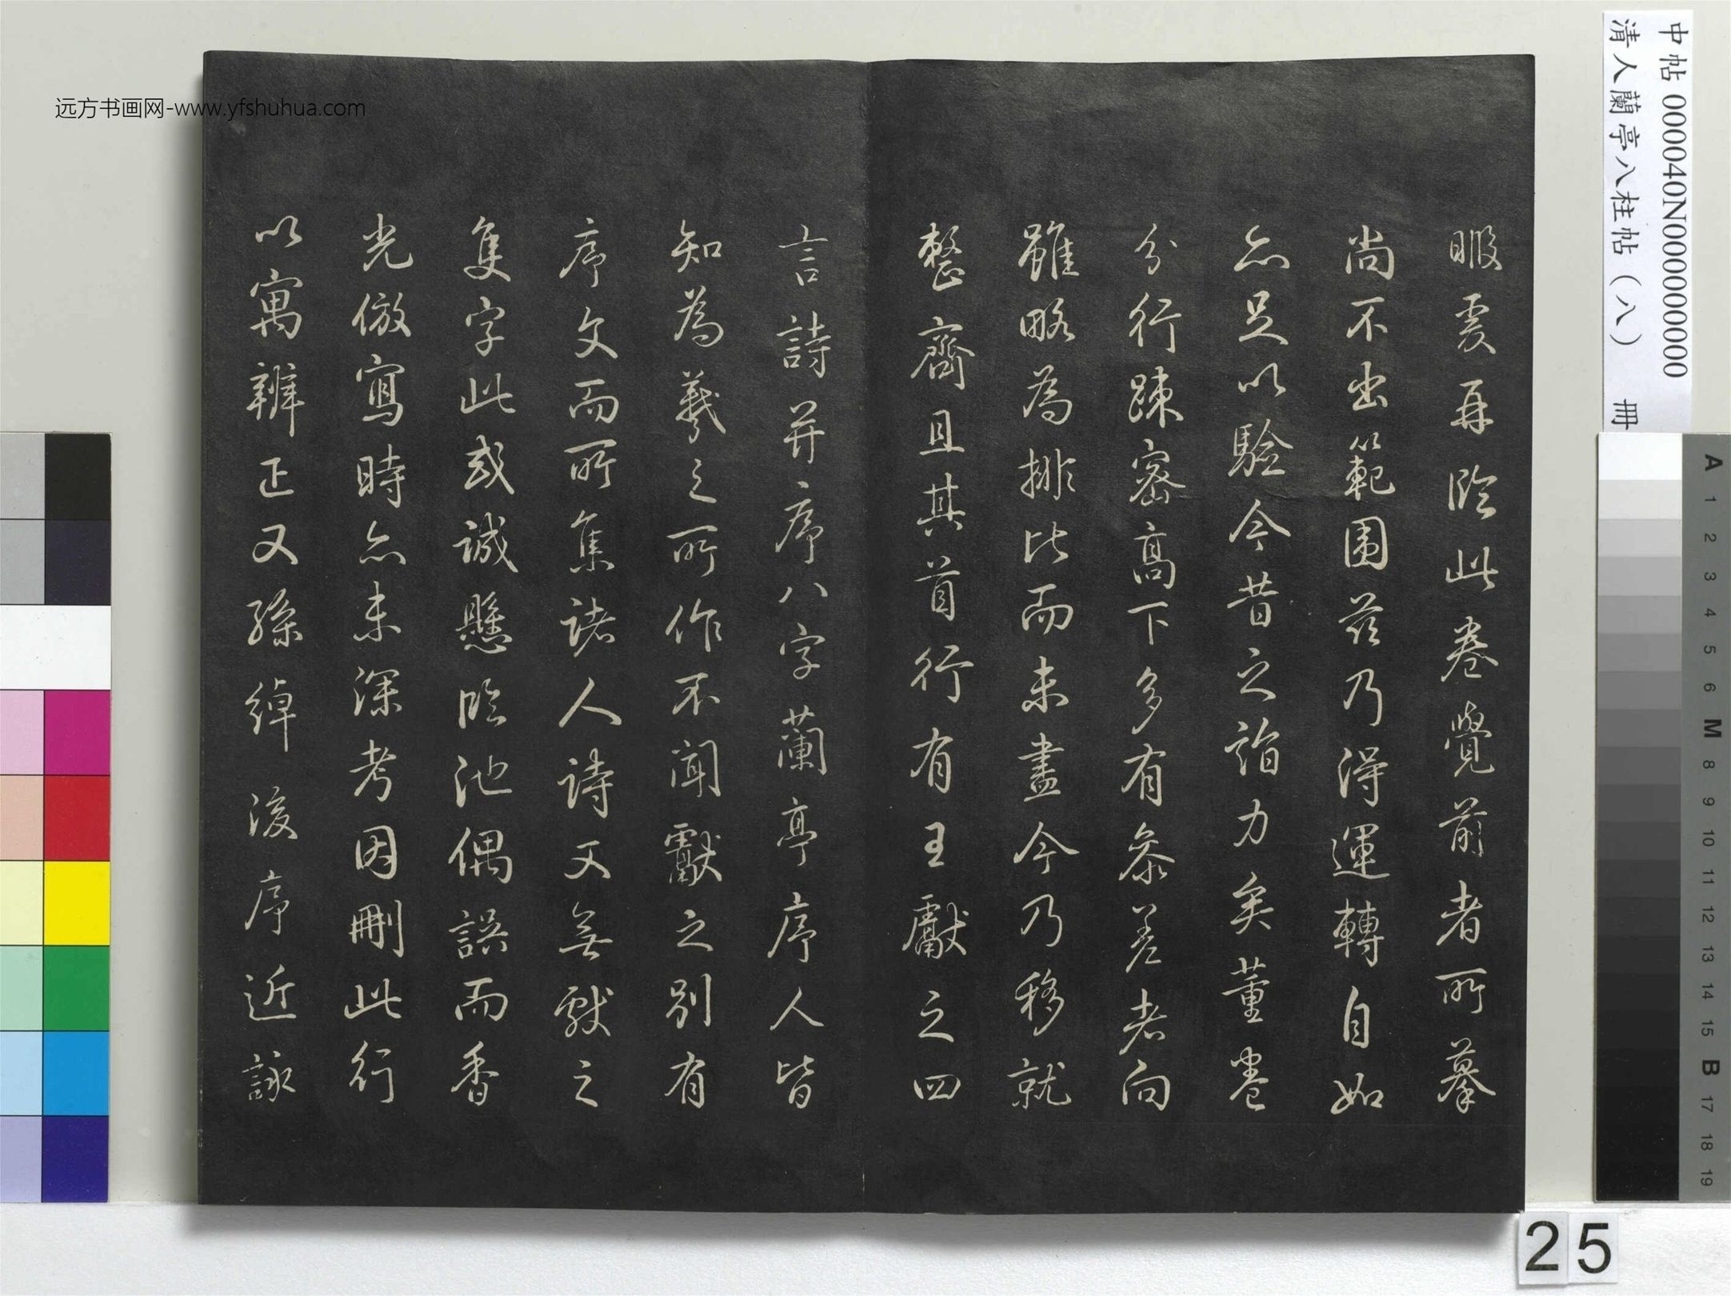 暇爰再臨此卷覺前者所摹
尚不出範圍茲乃得運轉自如
亦足以驗今昔之詣力矣董卷
分行疎密高下多有參差者向
雖略為排比而未盡今乃移就
整齊且其首行有王獻之四
言詩并序八字蘭亭序人皆
知為羲之所作不聞獻之別有
序文而所集諸人詩又無獻之
隻字此或誠懸臨池偶誤而香
光倣寫時亦未深考因刪此行
以寓辨正又孫綽後序近詠
远方书画网-www.yfshuhua.com
中帖 000040N000000000
清人蘭亭八柱帖(八) 冊
A 1 2 3 4 5 6 M 8 9 10 11 12 13 14 15 B 17 18 19
25